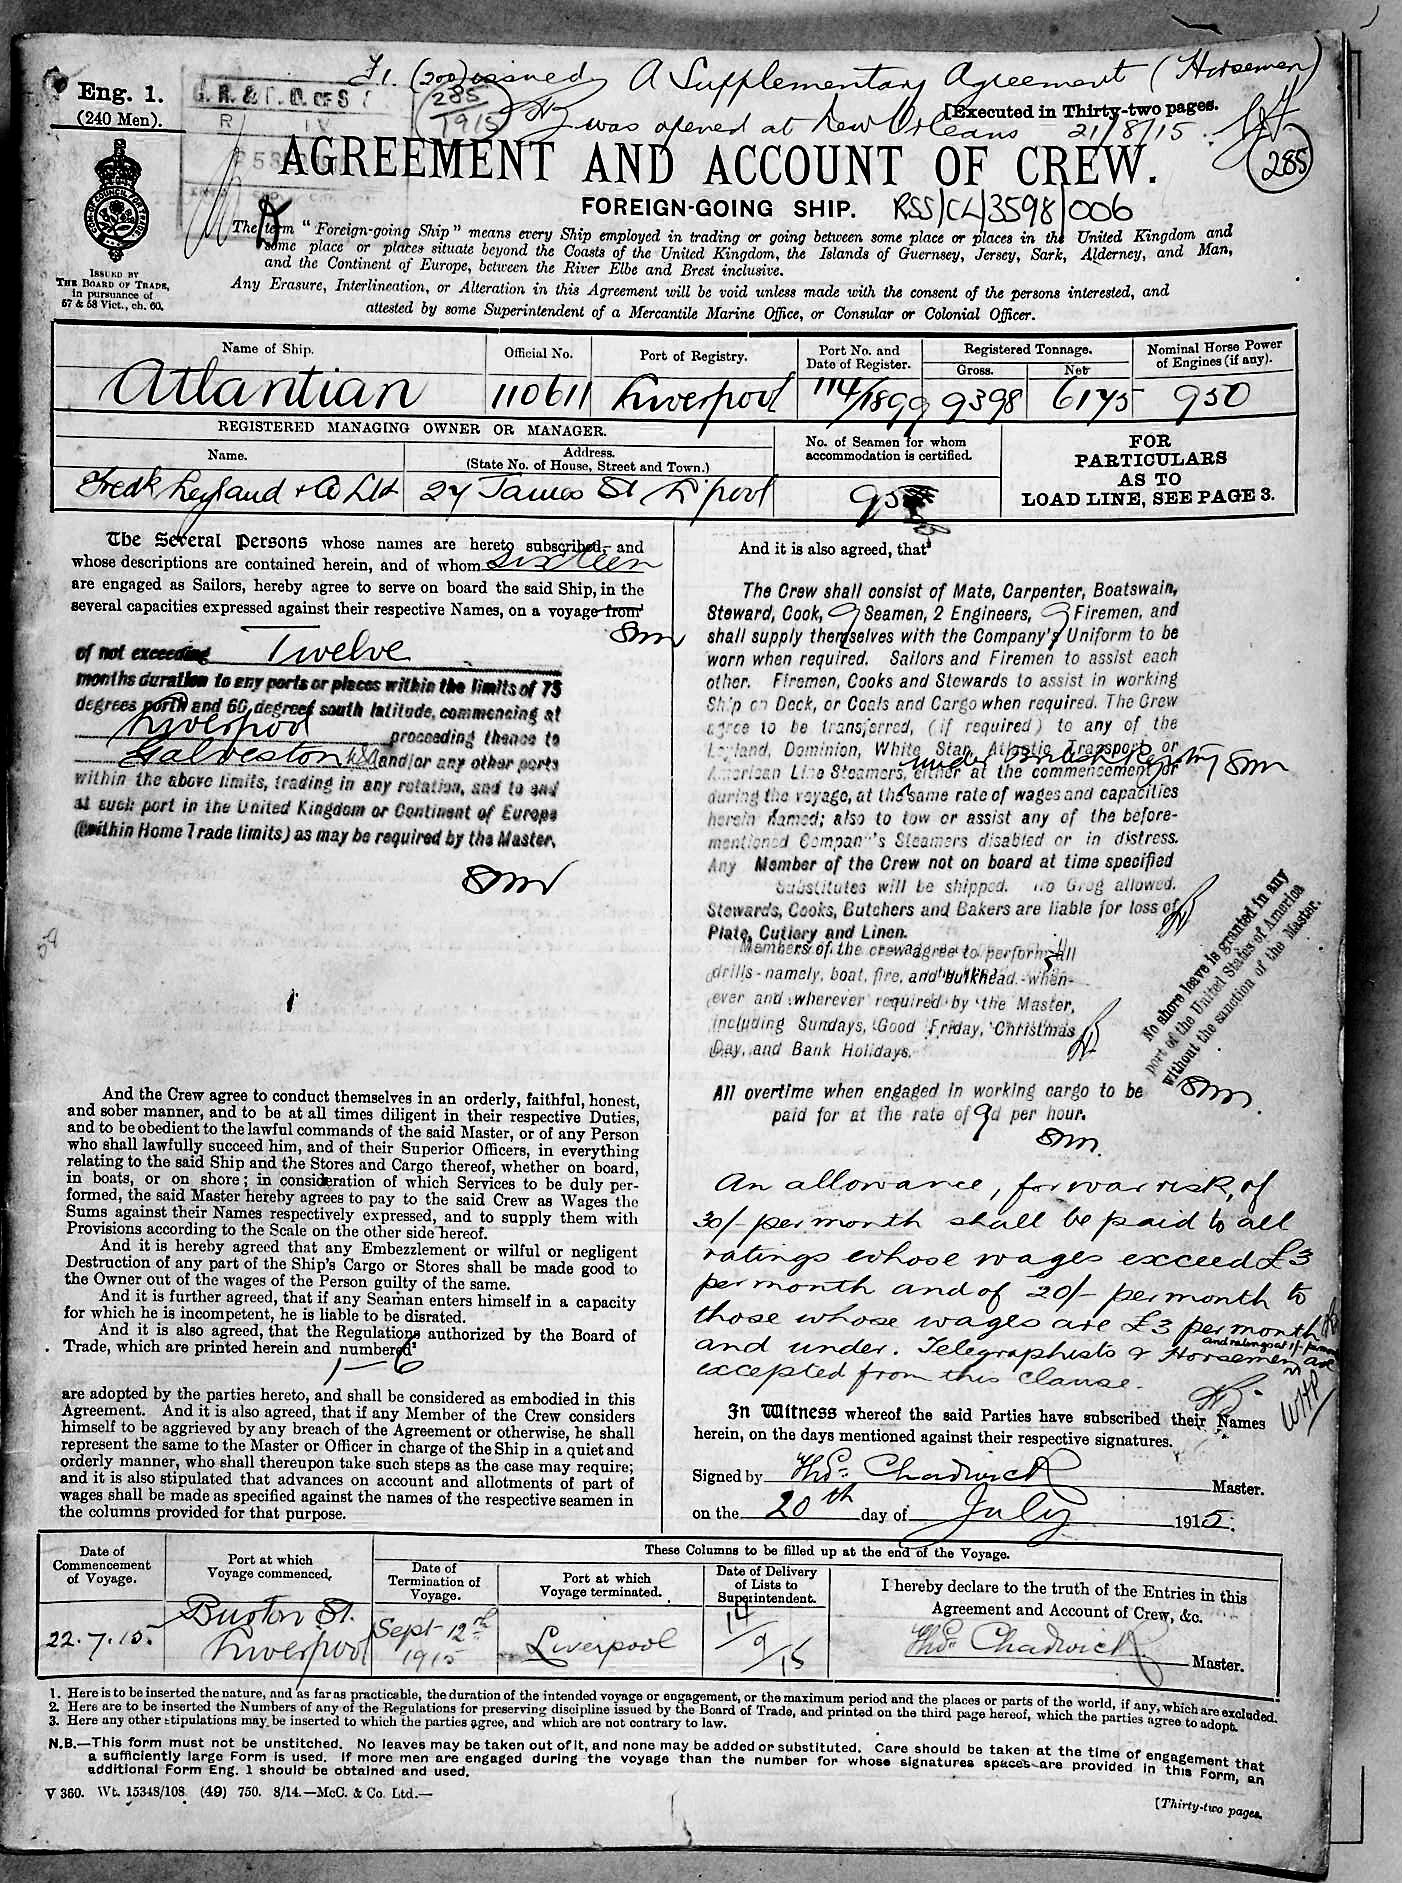 F1. (200) issued A Supplementary Agreement (Horsemen)
Eng. 1.
(240 Men).
285
1915
[Executed in Thirty-two pages.
was opened at New Orleans 21/8/15.
285
AGREEMENT AND ACCOUNT OF CREW.
FOREIGN-GOING SHIP. RSS/CL/3598/006
ISSUED BY
THE BOARD OF TRADE,
in pursuance of
57 & 58 Vict., ch. 60.
The term "Foreign-going Ship" means every Ship employed in trading or going between some place or places in the United Kingdom and
some place or places situate beyond the Coasts of the United Kingdom, the Islands of Guernsey, Jersey, Sark, Alderney, and Man,
and the Continent of Europe, between the River Elbe and Brest inclusive.
Any Erasure, Interlineation, or Alteration in this Agreement will be void unless made with the consent of the persons interested, and
attested by some Superintendent of a Mercantile Marine Office, or Consular or Colonial Officer.
Name of Ship. Official No. Port of Registry. Port No. and Date of Register. Registered Tonnage. Gross. Net Nominal Horse Power of Engines (if any).
Atlantian 110611 Liverpool 114/1899 9398 6175 950
REGISTERED MANAGING OWNER OR MANAGER.
Name. Address. (State No. of House, Street and Town.) No. of Seamen for whom accommodation is certified.
Fredk Leyland & Co Ltd 27 James St L'pool 95
FOR
PARTICULARS
AS TO
LOAD LINE, SEE PAGE 3.
The Several Persons whose names are hereto subscribed, and
whose descriptions are contained herein, and of whom sixteen
are engaged as Sailors, hereby agree to serve on board the said Ship, in the
several capacities expressed against their respective Names, on a voyage from
of not exceeding Twelve
months duration to any ports or places within the limits of 75
degrees north and 60 degrees south latitude, commencing at
Liverpool proceeding thence to
Galveston USA and/or any other ports
within the above limits, trading in any rotation, and to end
at such port in the United Kingdom or Continent of Europe
(within Home Trade limits) as may be required by the Master.
And the Crew agree to conduct themselves in an orderly, faithful, honest,
and sober manner, and to be at all times diligent in their respective Duties,
and to be obedient to the lawful commands of the said Master, or of any Person
who shall lawfully succeed him, and of their Superior Officers, in everything
relating to the said Ship and the Stores and Cargo thereof, whether on board,
in boats, or on shore; in consideration of which Services to be duly per-
formed, the said Master hereby agrees to pay to the said Crew as Wages the
Sums against their Names respectively expressed, and to supply them with
Provisions according to the Scale on the other side hereof.
And it is hereby agreed that any Embezzlement or wilful or negligent
Destruction of any part of the Ship's Cargo or Stores shall be made good to
the Owner out of the wages of the Person guilty of the same.
And it is further agreed, that if any Seaman enters himself in a capacity
for which he is incompetent, he is liable to be disrated.
And it is also agreed, that the Regulations authorized by the Board of
Trade, which are printed herein and numbered
1–6
are adopted by the parties hereto, and shall be considered as embodied in this
Agreement. And it is also agreed, that if any Member of the Crew considers
himself to be aggrieved by any breach of the Agreement or otherwise, he shall
represent the same to the Master or Officer in charge of the Ship in a quiet and
orderly manner, who shall thereupon take such steps as the case may require;
and it is also stipulated that advances on account and allotments of part of
wages shall be made as specified against the names of the respective seamen in
the columns provided for that purpose.
And it is also agreed, that
The Crew shall consist of Mate, Carpenter, Boatswain,
Steward, Cook, 9 Seamen, 2 Engineers, 9 Firemen, and
shall supply themselves with the Company's Uniform to be
worn when required. Sailors and Firemen to assist each
other. Firemen, Cooks and Stewards to assist in working
Ship on Deck, or Coals and Cargo when required. The Crew
agree to be transferred, (if required) to any of the
Leyland, Dominion, White Star, Atlantic Transport, or
under British Registry
American Line Steamers, either at the commencement or
during the voyage, at the same rate of wages and capacities
herein named; also to tow or assist any of the before-
mentioned Company's Steamers disabled or in distress.
Any Member of the Crew not on board at time specified
Substitutes will be shipped. No Grog allowed.
Stewards, Cooks, Butchers and Bakers are liable for loss of
Plate, Cutlery and Linen.
Members of the crew agree to perform all
drills - namely, boat, fire, and bulkhead - when-
ever and wherever required by the Master,
including Sundays, Good Friday, Christmas
Day, and Bank Holidays.
No shore leave is granted in any
port of the United States of America
without the sanction of the Master.
All overtime when engaged in working cargo to be
paid for at the rate of 9d per hour.
An allowance, for war risk, of
30/- per month shall be paid to all
ratings whose wages exceed £3
per month and of 20/- per month to
those whose wages are £3 per month
and under. Telegraphists & Horsemen and ratings at 1/- per month are
excepted from this clause.
In Witness whereof the said Parties have subscribed their Names
herein, on the days mentioned against their respective signatures.
Signed by Thos. Chadwick Master.
on the 20th day of July 1915.
These Columns to be filled up at the end of the Voyage.
Date of Commencement of Voyage. Port at which Voyage commenced. Date of Termination of Voyage. Port at which Voyage terminated. Date of Delivery of Lists to Superintendent. I hereby declare to the truth of the Entries in this Agreement and Account of Crew, &c.
22.7.15. Liverpool Sept 12th 1915 Liverpool 14/9/15 Thos. Chadwick Master.
1. Here is to be inserted the nature, and as far as practicable, the duration of the intended voyage or engagement, or the maximum period and the places or parts of the world, if any, which are excluded.
2. Here are to be inserted the Numbers of any of the Regulations for preserving discipline issued by the Board of Trade, and printed on the third page hereof, which the parties agree to adopt.
3. Here any other stipulations may be inserted to which the parties agree, and which are not contrary to law.
N.B.—This form must not be unstitched. No leaves may be taken out of it, and none may be added or substituted. Care should be taken at the time of engagement that
a sufficiently large Form is used. If more men are engaged during the voyage than the number for whose signatures spaces are provided in this Form, an
additional Form Eng. 1 should be obtained and used.
V 360. Wt. 15348/108 (49) 750. 8/14.—McC. & Co. Ltd.—
[Thirty-two pages.